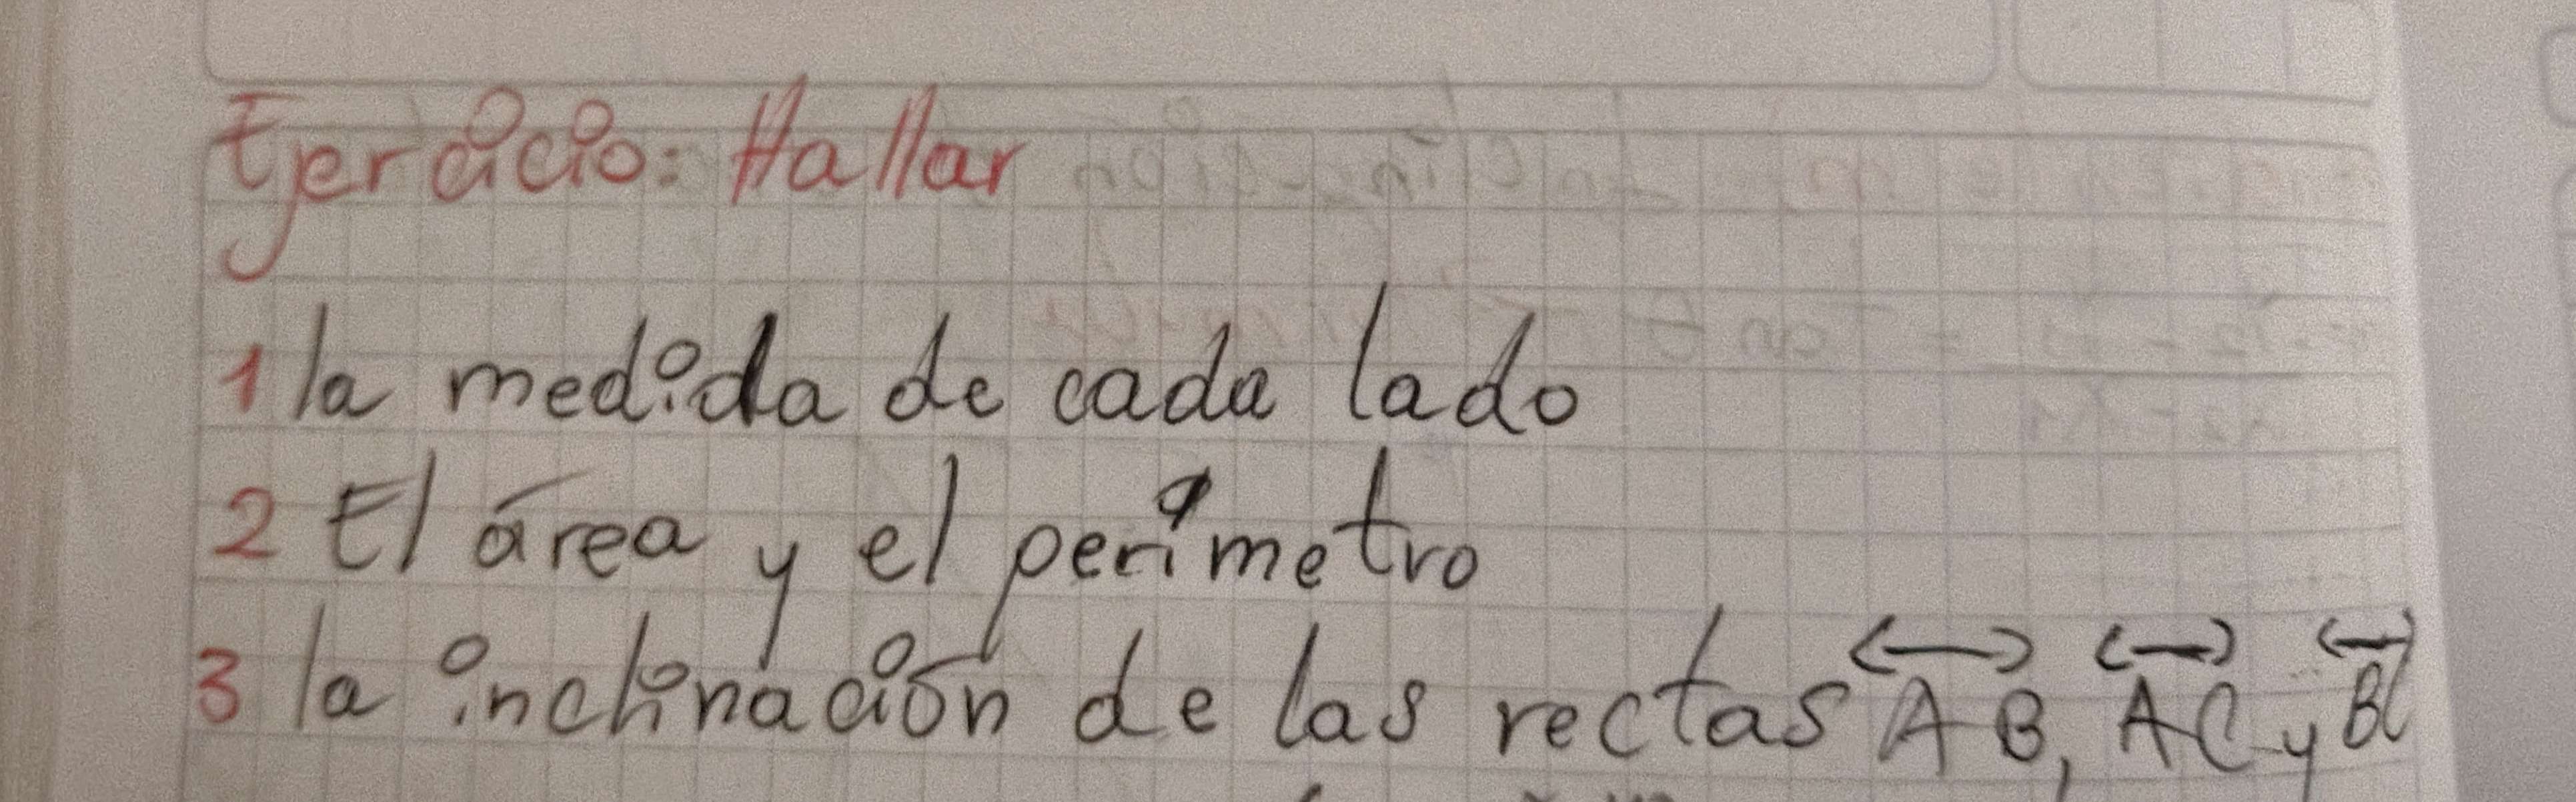 Ejercicio: Hallar
1 la medida de cada lado
2 El área y el perímetro
3 la inclinación de las rectas AB, AC y BC